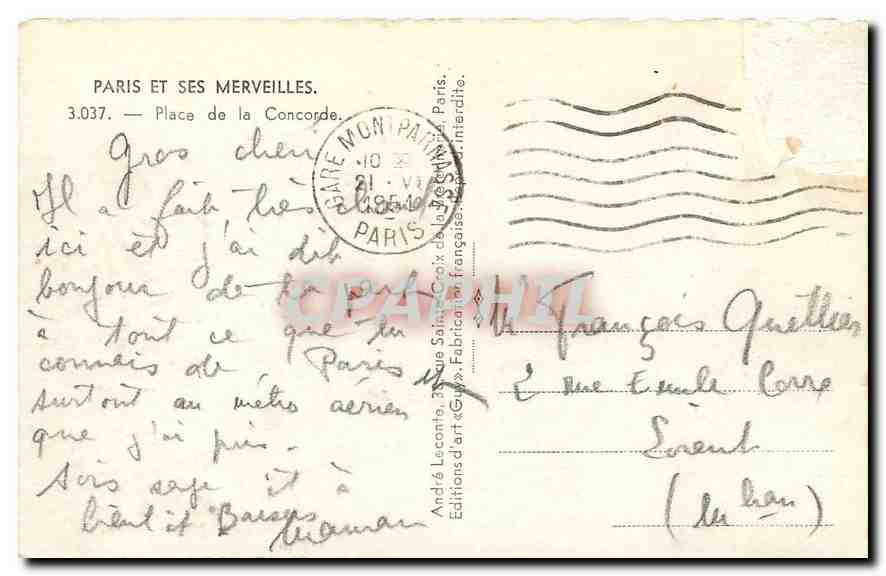 PARIS ET SES MERVEILLES.
3.037. — Place de la Concorde.
Gros chéri
Il a fait très chaud
ici et j'ai dit
bonjour de ta part
à tout ce que tu
connais de Paris et
surtout au métro aérien
que j'ai pris.
Sois sage et à
bientôt Baisers
Maman
GARE MONTPARNASSE
10 H
21 - VI
1954
PARIS
André Leconte, 38, rue Sainte-Croix de la Bretonnerie, Paris.
Editions d'art «Guy». Fabrication française. Reprod. interdite.
CPAPHIL
Mr François Quellien
2 rue Emile Corre
Lorient
(Morbihan)